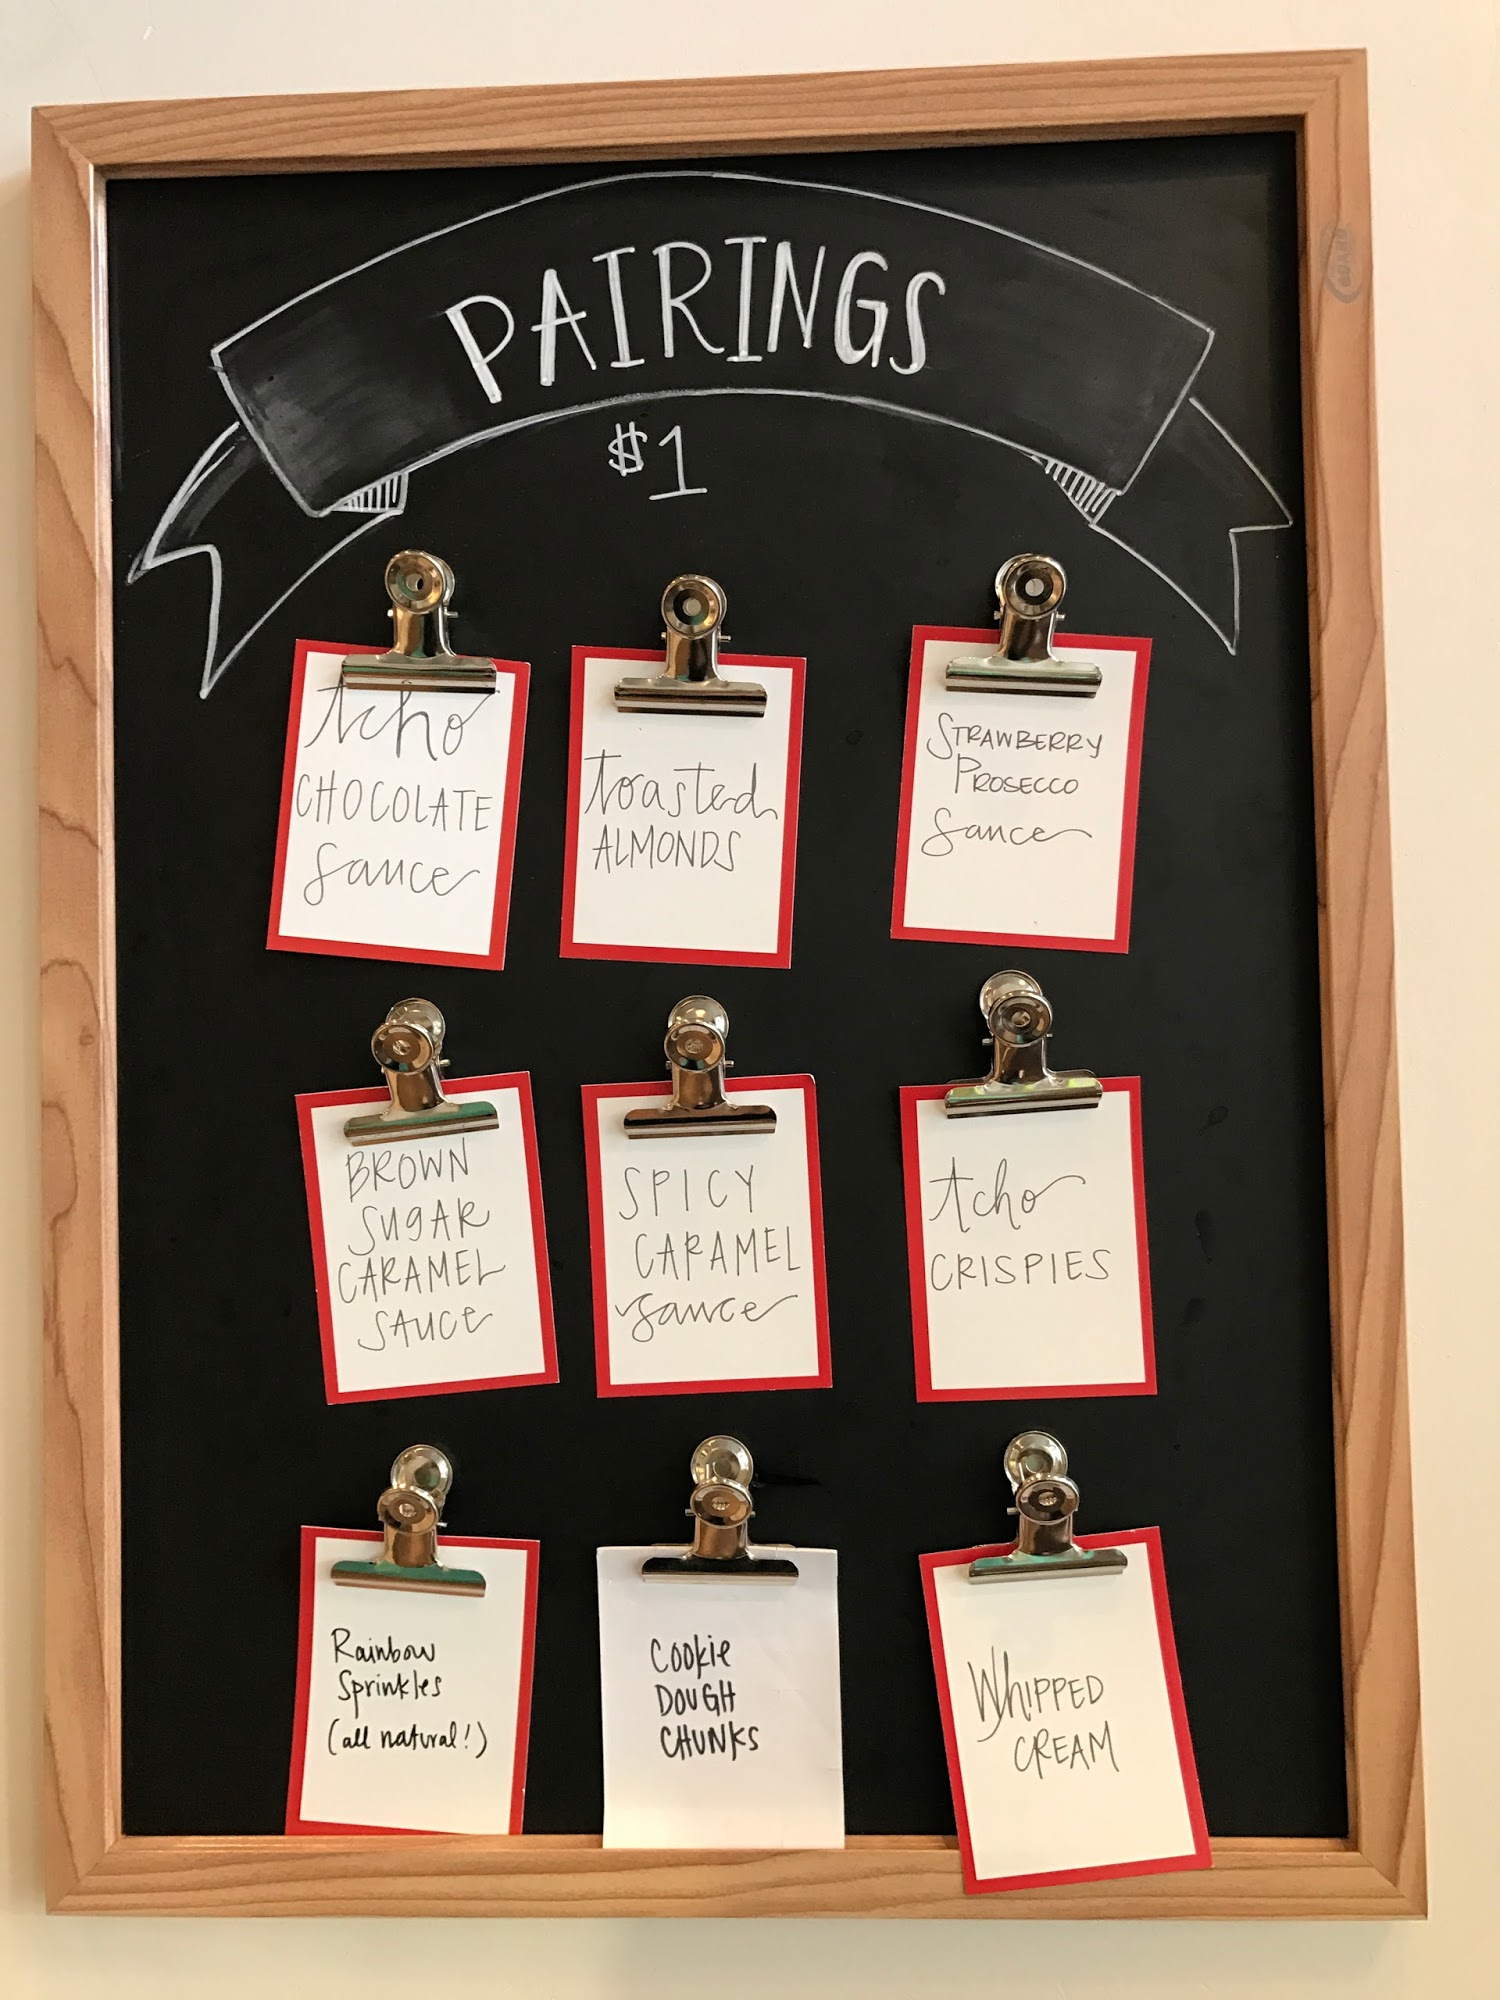 PAIRINGS
$1
tcho
CHOCOLATE
sauce
toasted
ALMONDS
STRAWBERRY
PROSECCO
sauce
BROWN
SUGAR
CARAMEL
SAUCE
SPICY
CARAMEL
sauce
tcho
CRISPIES
Rainbow
Sprinkles
(all natural!)
COOKiE
DOUGH
CHUNKS
WhIPPED
CREAM